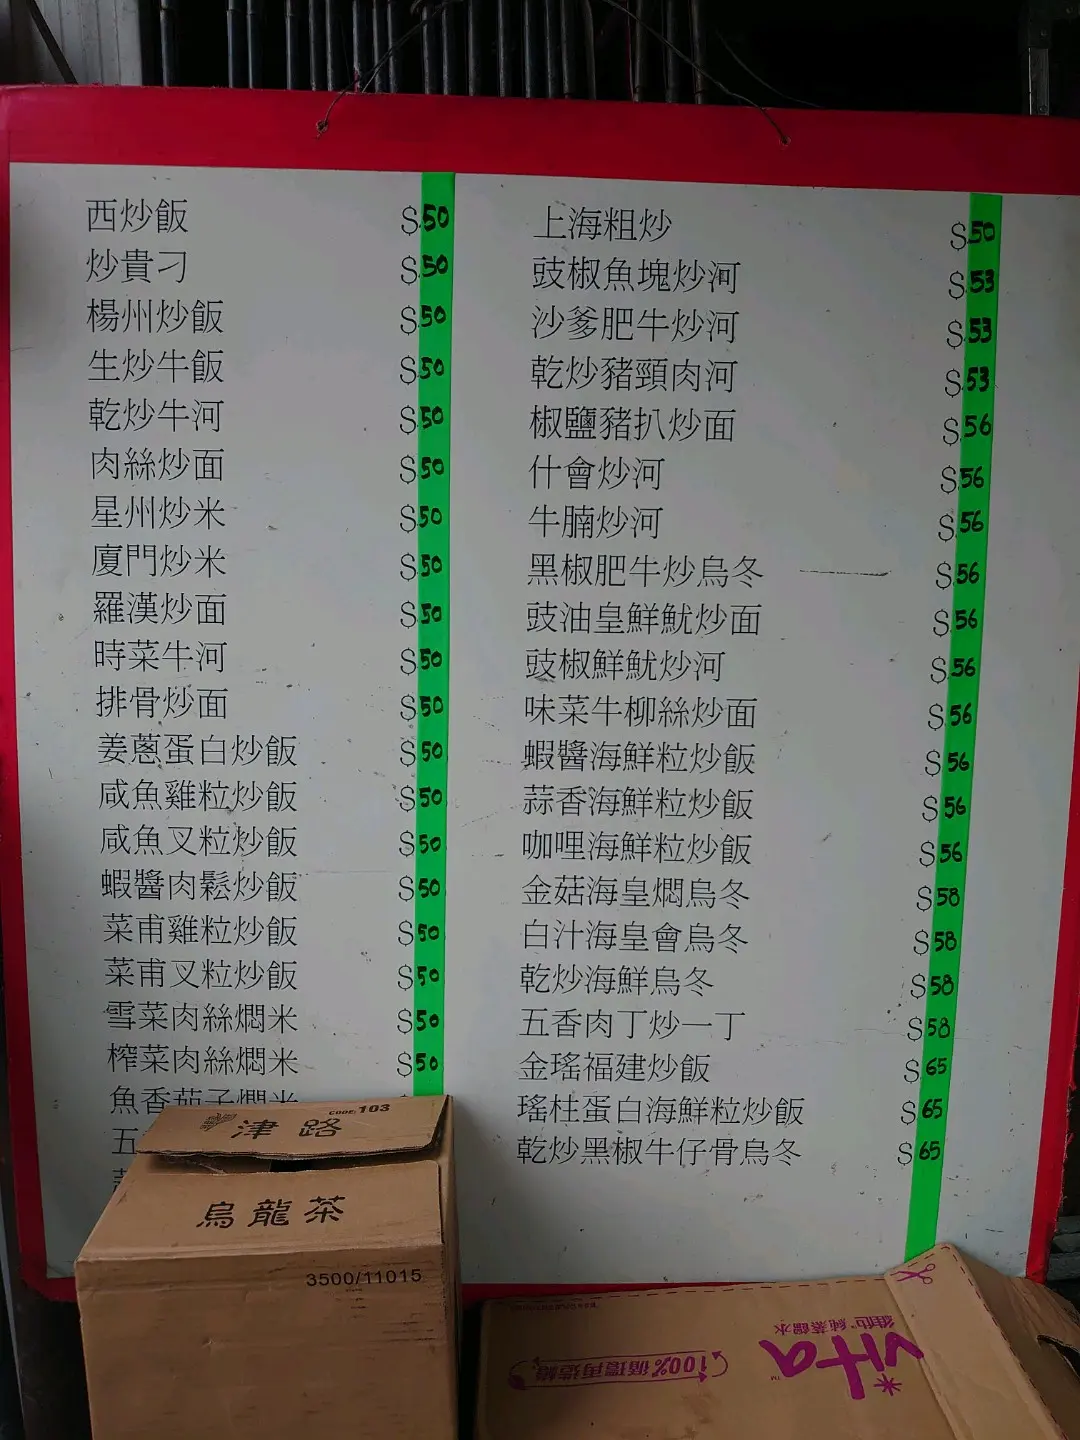 西炒飯 $50
炒貴刁 $50
楊州炒飯 $50
生炒牛飯 $50
乾炒牛河 $50
肉絲炒面 $50
星州炒米 $50
廈門炒米 $50
羅漢炒面 $50
時菜牛河 $50
排骨炒面 $50
姜蔥蛋白炒飯 $50
咸魚雞粒炒飯 $50
咸魚叉粒炒飯 $50
蝦醬肉鬆炒飯 $50
菜甫雞粒炒飯 $50
菜甫叉粒炒飯 $50
雪菜肉絲燜米 $50
榨菜肉絲燜米 $50
魚香茄子燜米
五
上海粗炒 $50
豉椒魚塊炒河 $53
沙爹肥牛炒河 $53
乾炒豬頸肉河 $53
椒鹽豬扒炒面 $56
什會炒河 $56
牛腩炒河 $56
黑椒肥牛炒烏冬 $56
豉油皇鮮魷炒面 $56
豉椒鮮魷炒河 $56
味菜牛柳絲炒面 $56
蝦醬海鮮粒炒飯 $56
蒜香海鮮粒炒飯 $56
咖哩海鮮粒炒飯 $56
金菇海皇燜烏冬 $58
白汁海皇會烏冬 $58
乾炒海鮮烏冬 $58
五香肉丁炒一丁 $58
金瑤福建炒飯 $65
瑤柱蛋白海鮮粒炒飯 $65
乾炒黑椒牛仔骨烏冬 $65
CODE:103
津路
烏龍茶
3500/11015
vita
維他 純蒸餾水
100%循環再造紙